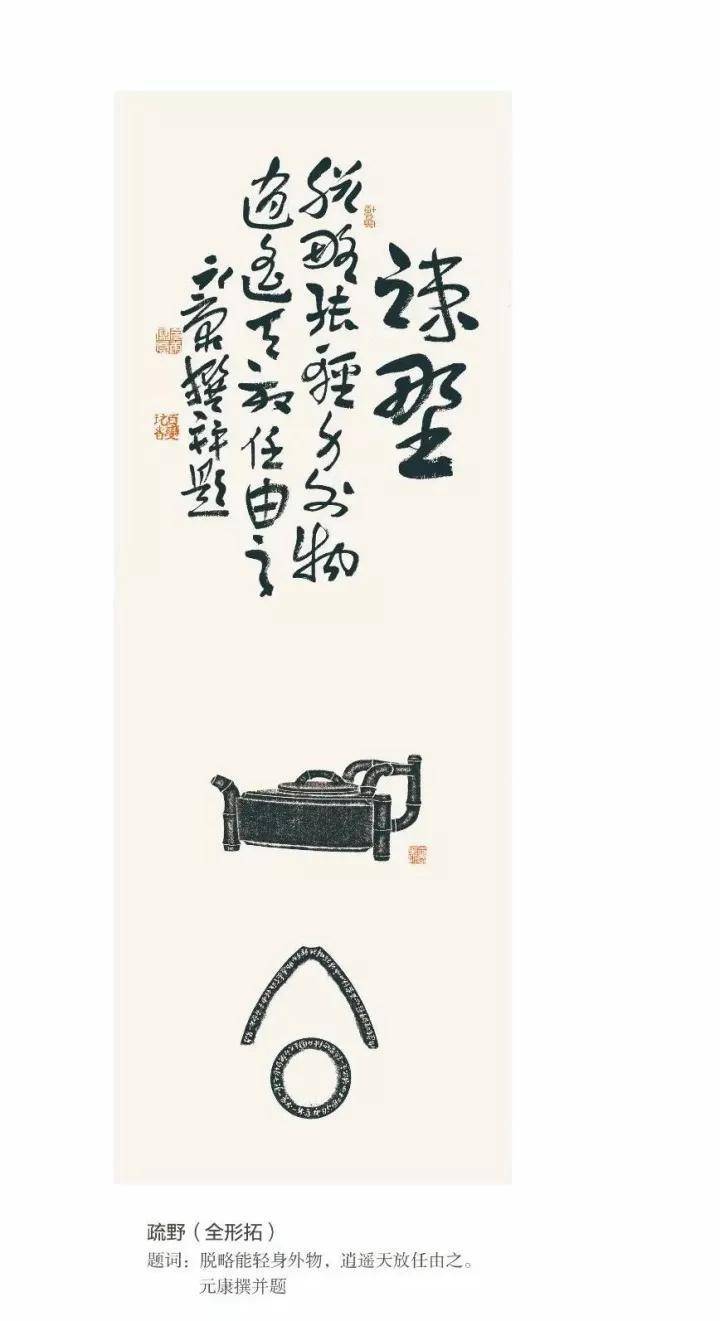 疎野
脱略能輕身外物
逍遙天放任由之
元康撰并題
疏野（全形拓）
题词：脱略能轻身外物，逍遥天放任由之。
元康撰并题